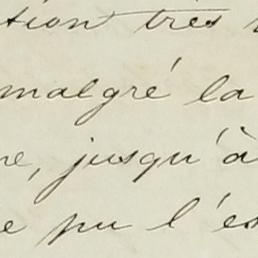 tion très
malgré la
e, jusqu'à
e pu l'es